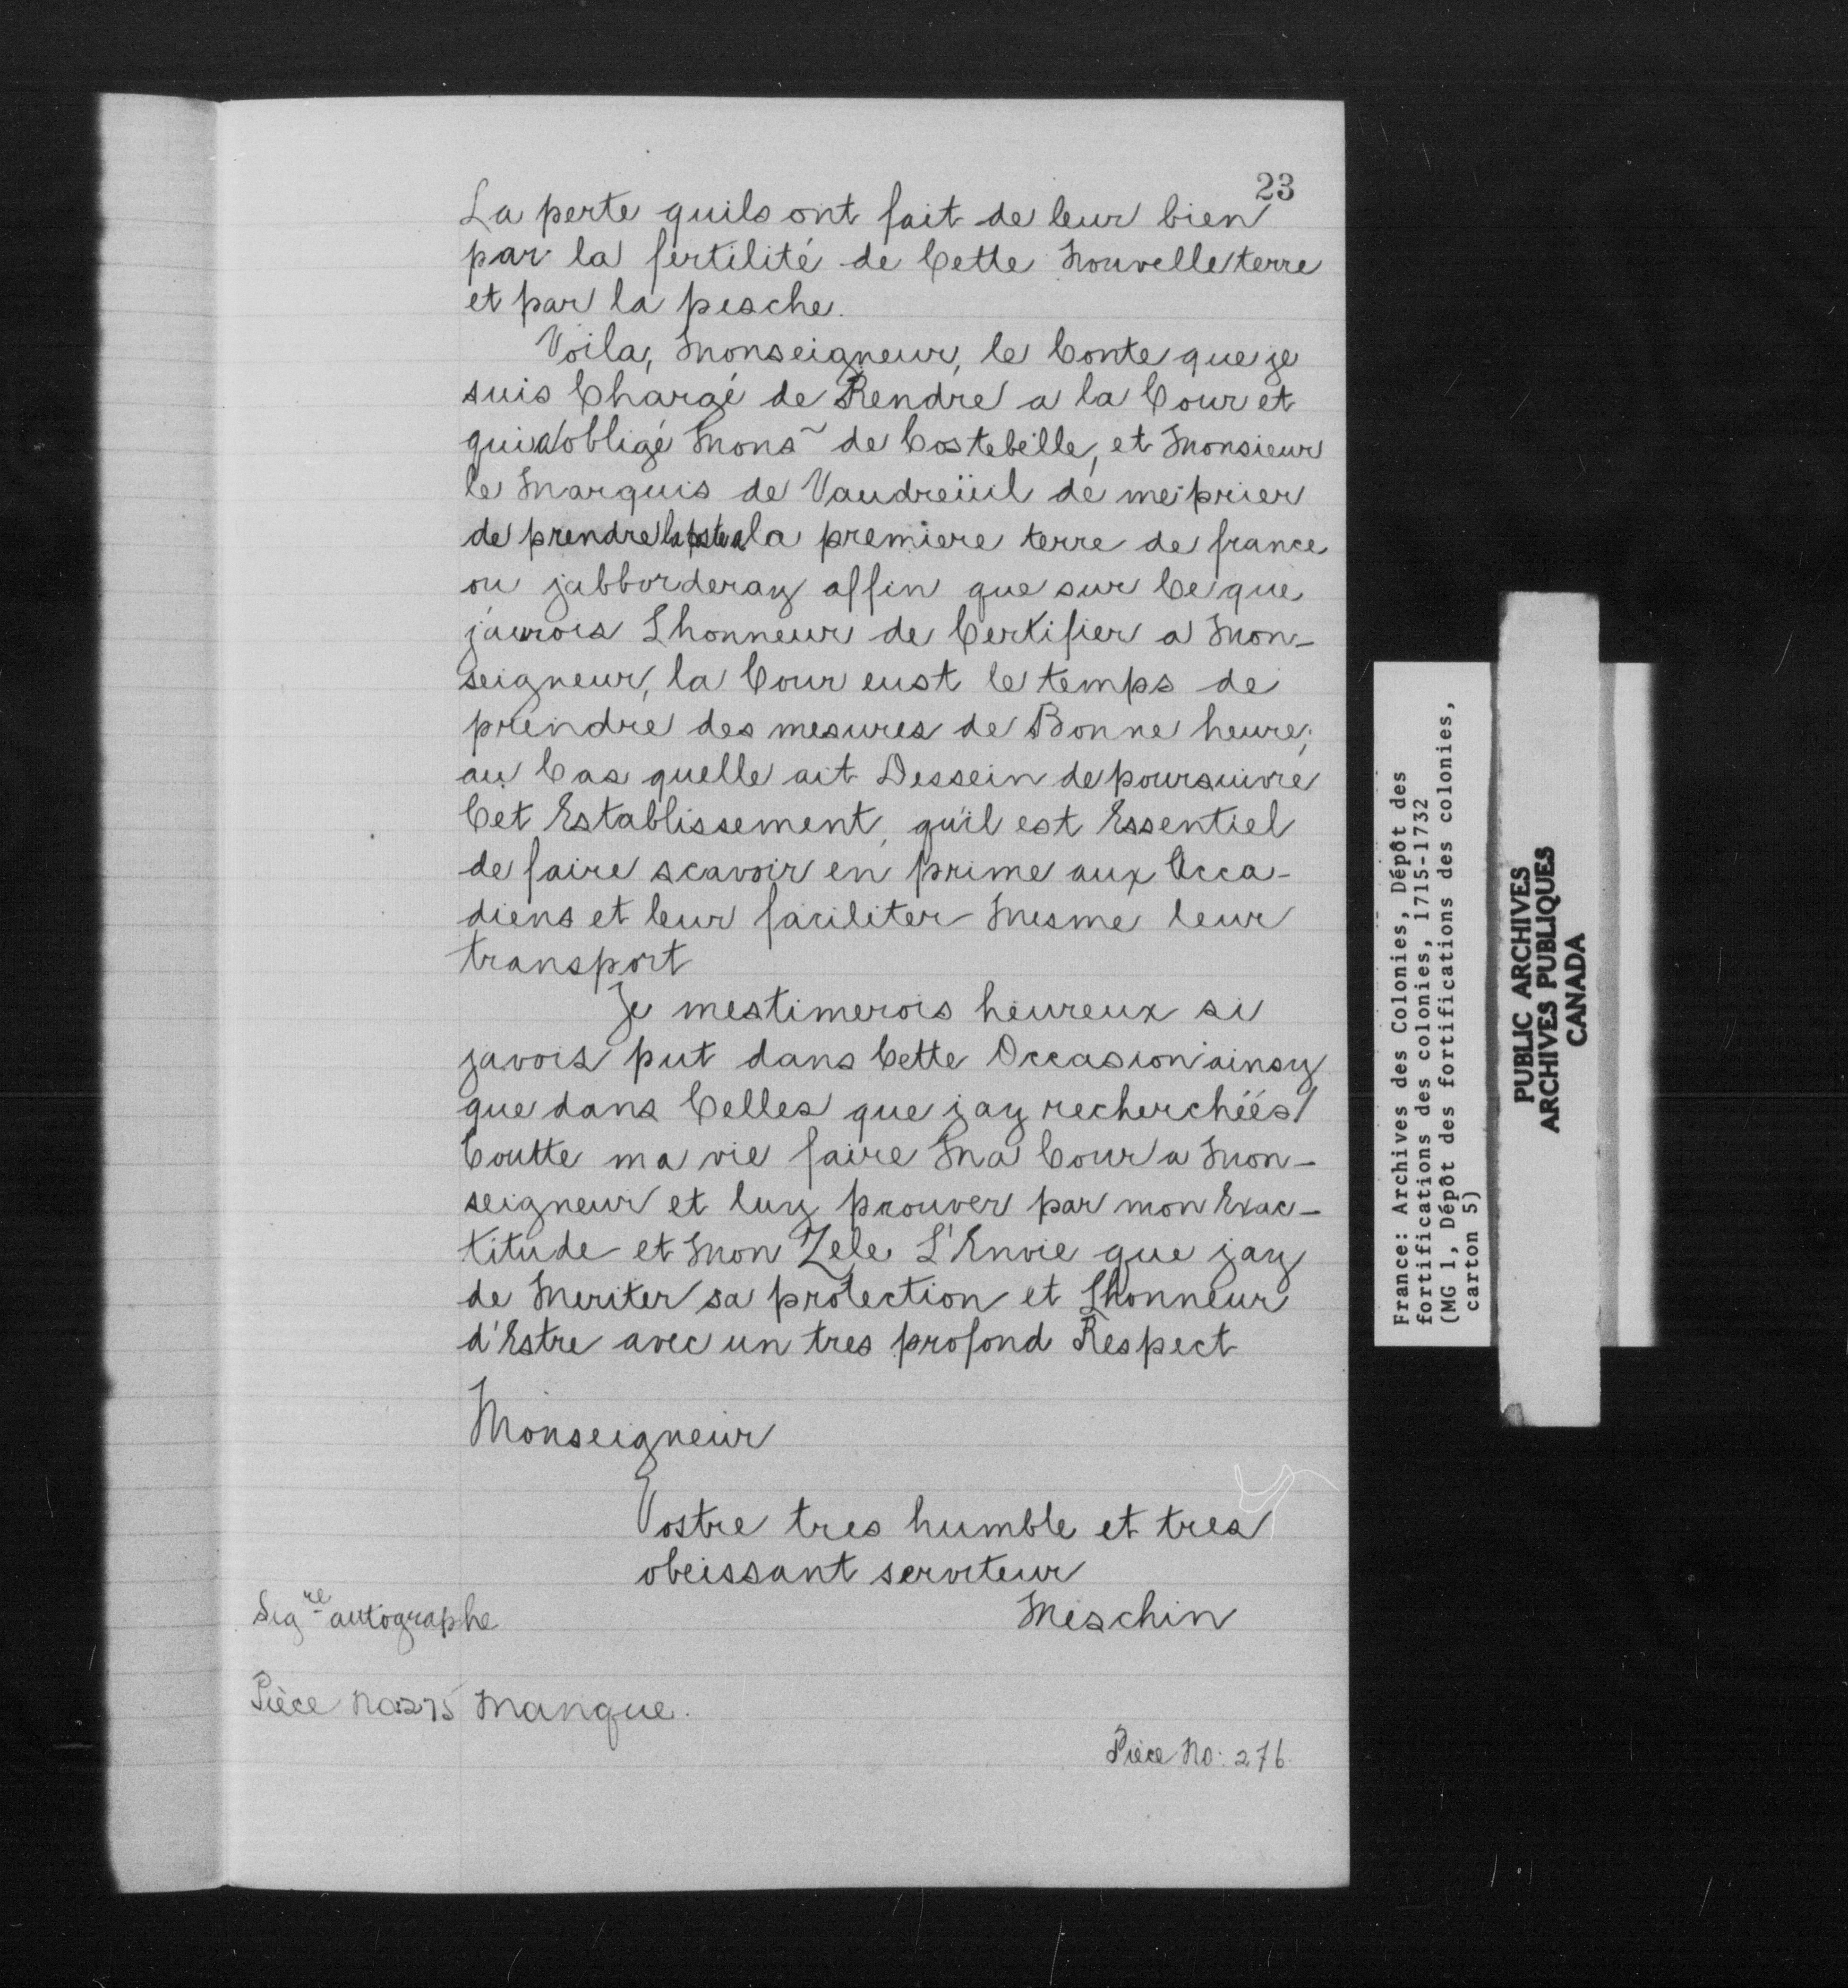 23
La perte quils ont fait de leur bien
par la fertilité de Cette Nouvelle terre
et par la pesche.
Voila, Monseigneur, le Conte que je
suis Chargé de Rendre a la Cour et
qui a obligé Mons~ de Costebelle, et Monsieur
le Marquis de Vaudreüil de me prier
de prendre la poste a la premiere terre de france
ou jabborderay affin que sur Ce que
j'aurois Lhonneur de Certifier a Mon-
seigneur, la Cour eust le temps de
prendre des mesures de Bonne heure;
au Cas quelle ait Dessein de poursuivre
Cet Establissement, qu'il est Essentiel
de faire scavoir en prime aux Acca-
diens et leur faciliter Mesme leur
transport
Je mestimerois heureux si
javois put dans Cette Occasion ainsy
que dans Celles que jay recherchéés
toutte ma vie faire Ma Cour a Mon-
seigneur et luy prouver par mon Exac-
titude et Mon Zele L'Envie que jay
de Meriter sa protection et Lhonneur
d'Estre avec un tres profond Respect
Monseigneur
Vostre tres humble et tres
obeissant serviteur
Meschin
Sigre autographe
Pièce No: 275 Manque.
Pièce No: 276
France: Archives des Colonies, Dépôt des
fortifications des colonies, 1715-1732
(MG 1, Dépôt des fortifications des colonies,
carton 5)
PUBLIC ARCHIVES
ARCHIVES PUBLIQUES
CANADA